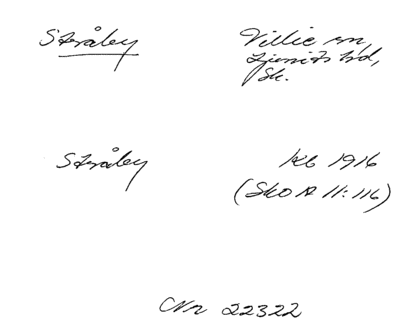 Stråley
Villie sn,
Ljunits hd,
Sk.
Stråley
Kb 1916
(SkO A 11:116)
Nr 22322